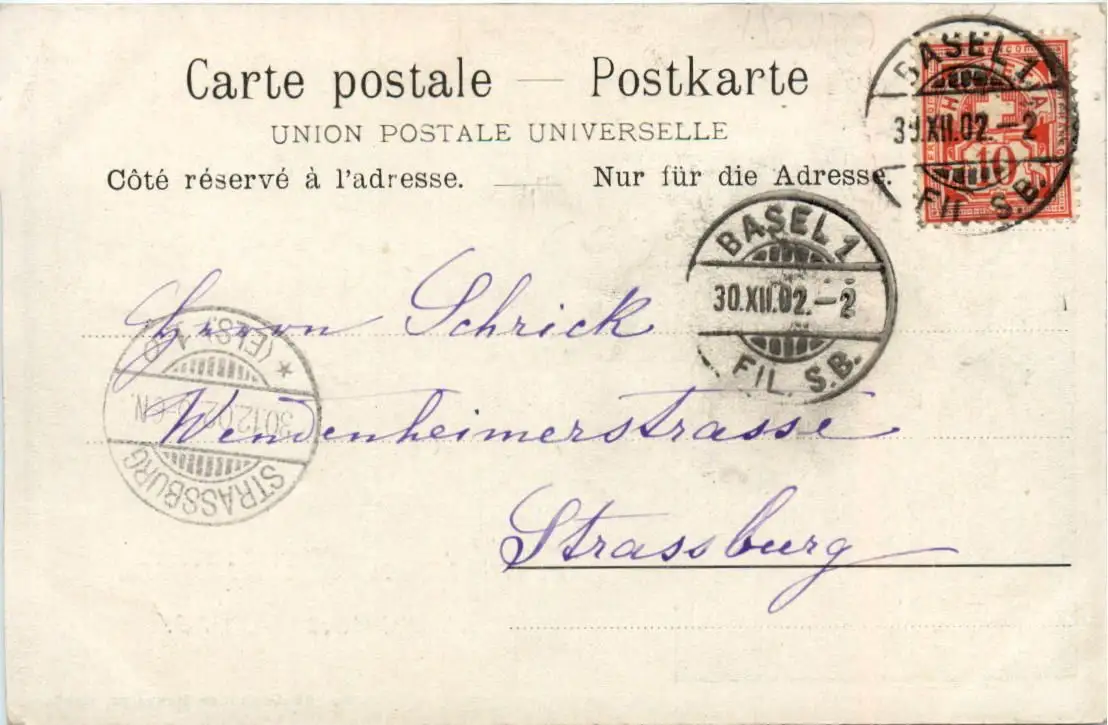 Carte postale — Postkarte
UNION POSTALE UNIVERSELLE
Côté réservé à l'adresse. — Nur für die Adresse.
BASEL 1
30.XII.02.–2
FIL. S.B.
10
BASEL 1
30.XII.02.–2
FIL. S.B.
Herrn Schrick
Wendenheimerstrasse
Strassburg
STRASSBURG
30.12.02
(ELS). 1